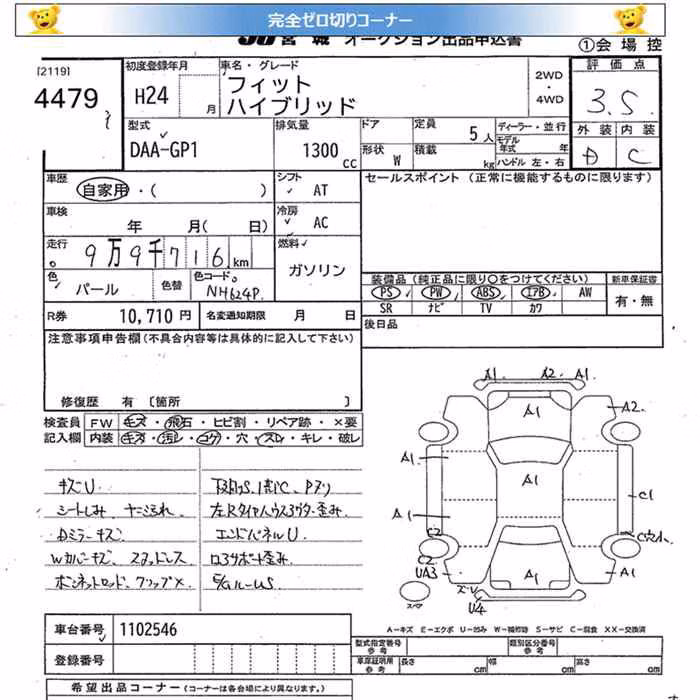 完全ゼロ切りコーナー
宮城 オークション出品申込書
①会 場 控
[2119]
4479
初度登録年月
H24 月
車名・グレード
フィット
ハイブリッド
2WD
・
4WD
評 価 点
3.5
外 装 内 装
D C
型式
DAA-GP1
排気量
1300 cc
ドア
形状 W
定員 5人
積載 kg
ディーラー・並行
モデル年式 年
ハンドル 左・右
車歴
自家用 ・( )
シフト
AT
セールスポイント (正常に機能するものに限ります)
車検
年 月( 日)
冷房
AC
走行
9万9千716km
燃料
ガソリン
色
パール
色替
色コードNo.
NH624P
装備品 (純正品に限り○をつけてください)
新車保証書
PS PW ABS エアB AW
有・無
SR ナビ TV カワ
R券 10,710 円
名変通知期限 月 日
後日品
注意事項申告欄 (不具合内容等は具体的に記入して下さい)
修復歴 有 〔箇所
検査員 FW キズ・飛石・ヒビ割・リペア跡・×要
記入欄 内装 キズ・汚レ・コゲ・穴・スレ・キレ・破レ
キズU
シートしみ ヤニ汚れ
Dミラーキズ
Wカバーキズ、スタッドレス
ボンネットロッド、クリップ×
エンドパネルU
ロアサポート歪み
A1 A2 A1
A1
A2
A1
A1
C1
A1
C2
C穴小
C2
UA3
A1
A1
ズレ
U4
スペア
A-キズ E-エクボ U-凹み W-補修跡 S-サビ C-腐食 XX-交換済
車台番号 1102546
型式指定番号
類別区分番号
登録番号
車庫証明用参考
長さ cm 幅 cm 高さ cm
希望出品コーナー (コーナーは各会場により異なります。)